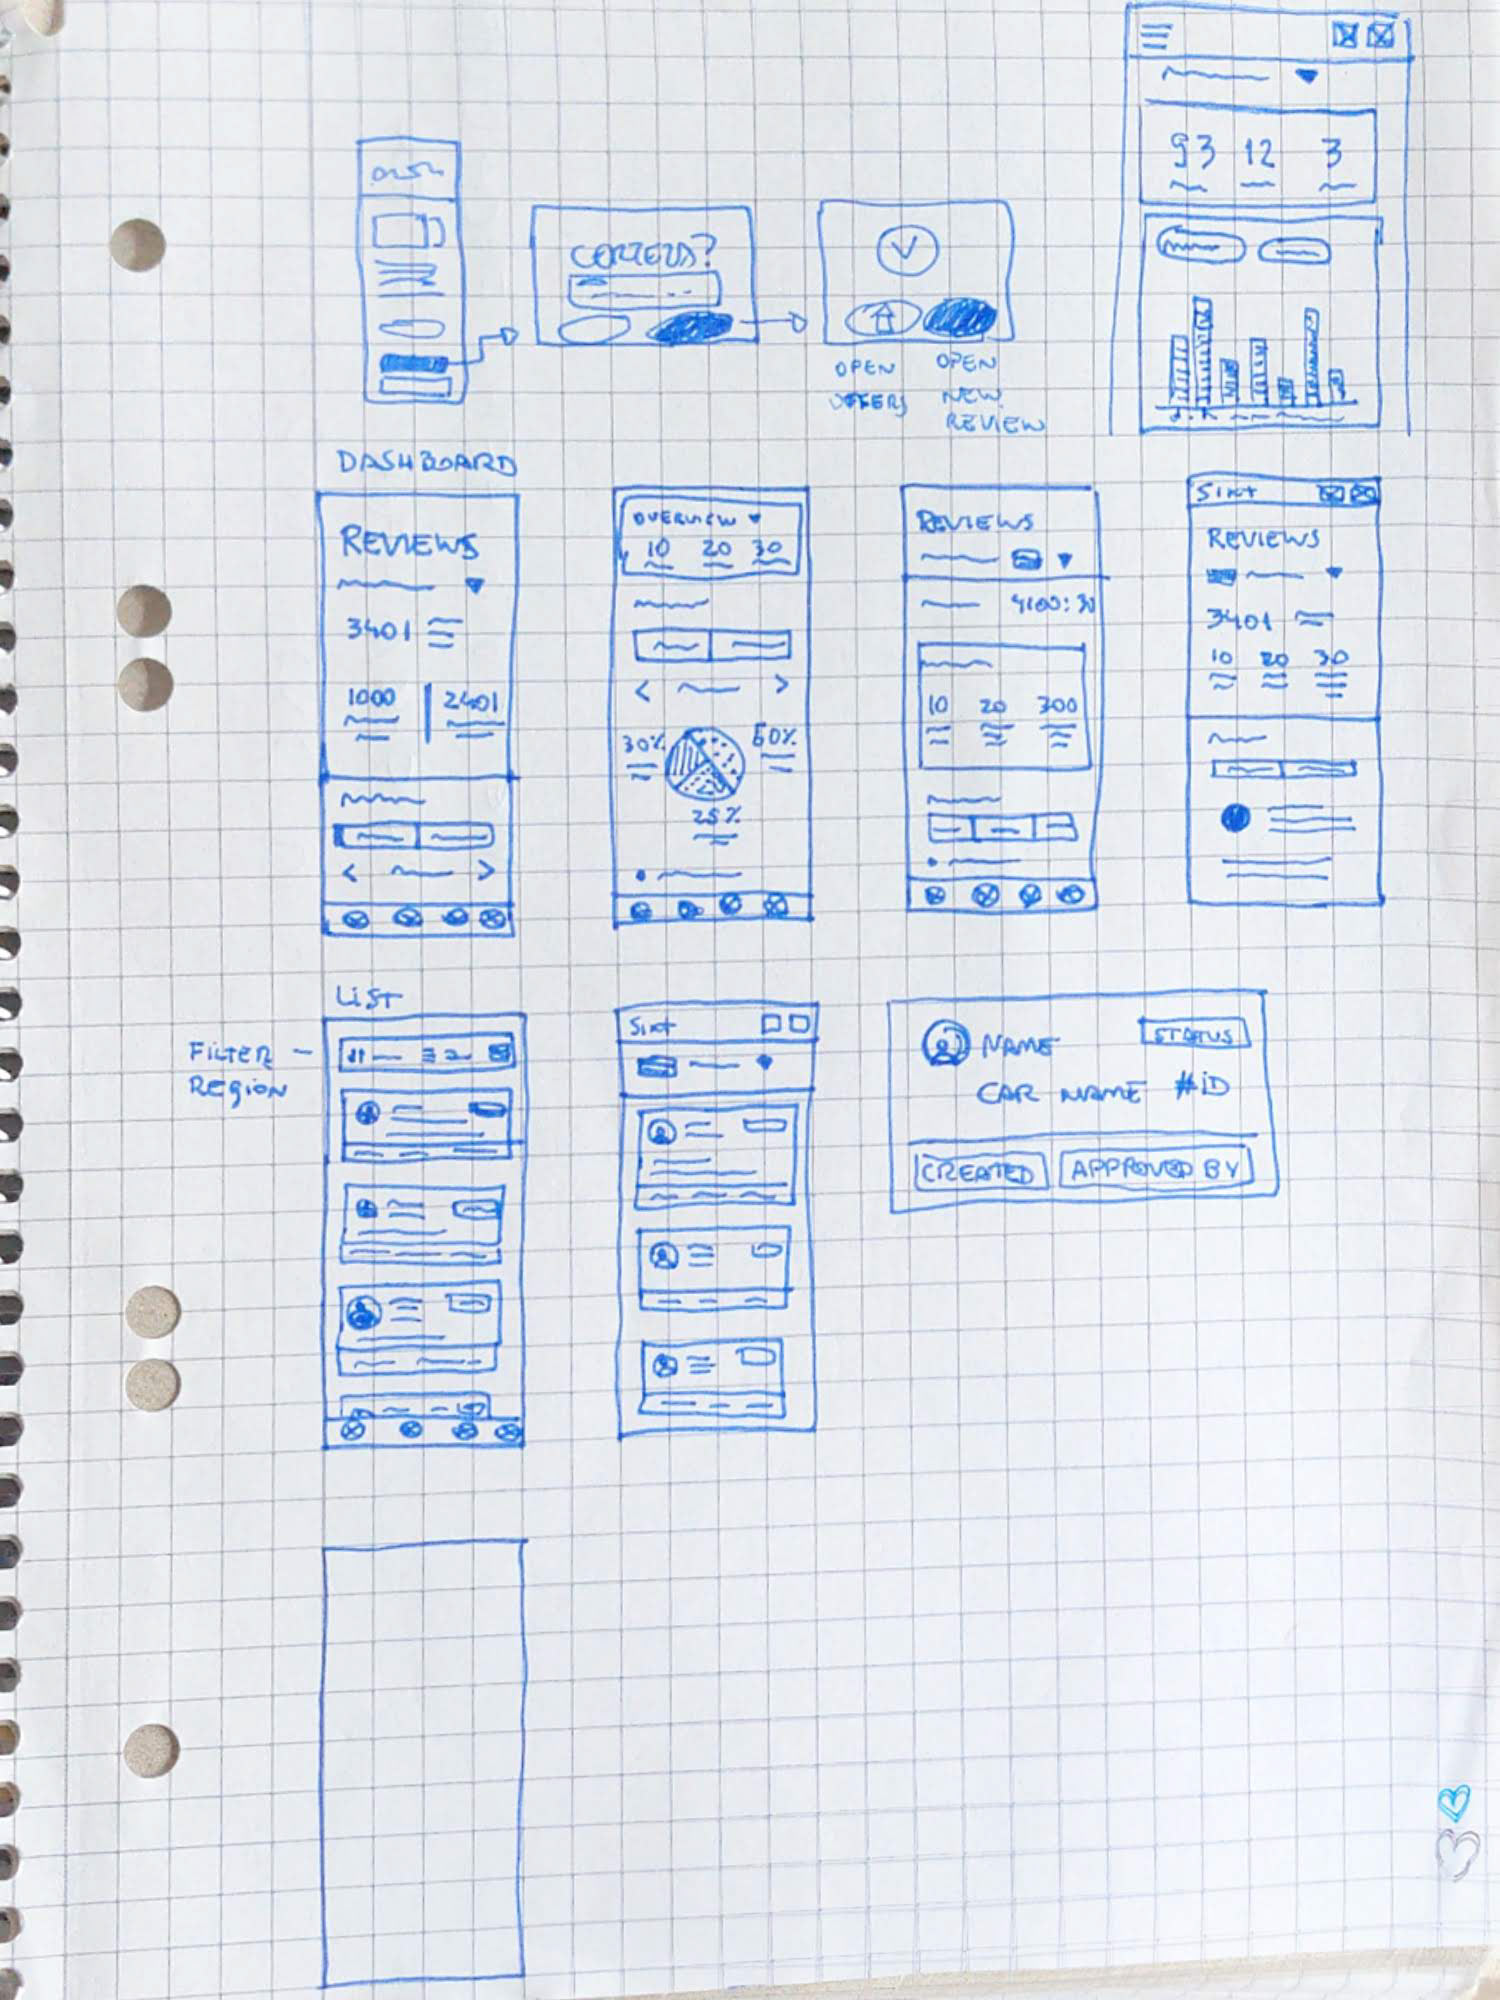 93 12 3
OPEN
OFFERS
OPEN
NEW
REVIEW
DASHBOARD
REVIEWS
3401
1000
2401
OVERVIEW
10 20 30
30%
60%
25%
REVIEWS
4100:30
10 20 300
Sixt
REVIEWS
3401
10 20 30
LiST
FILTER
REGION
Sixt
NAME
STATUS
CAR NAME #iD
CREATED
APPROVED BY